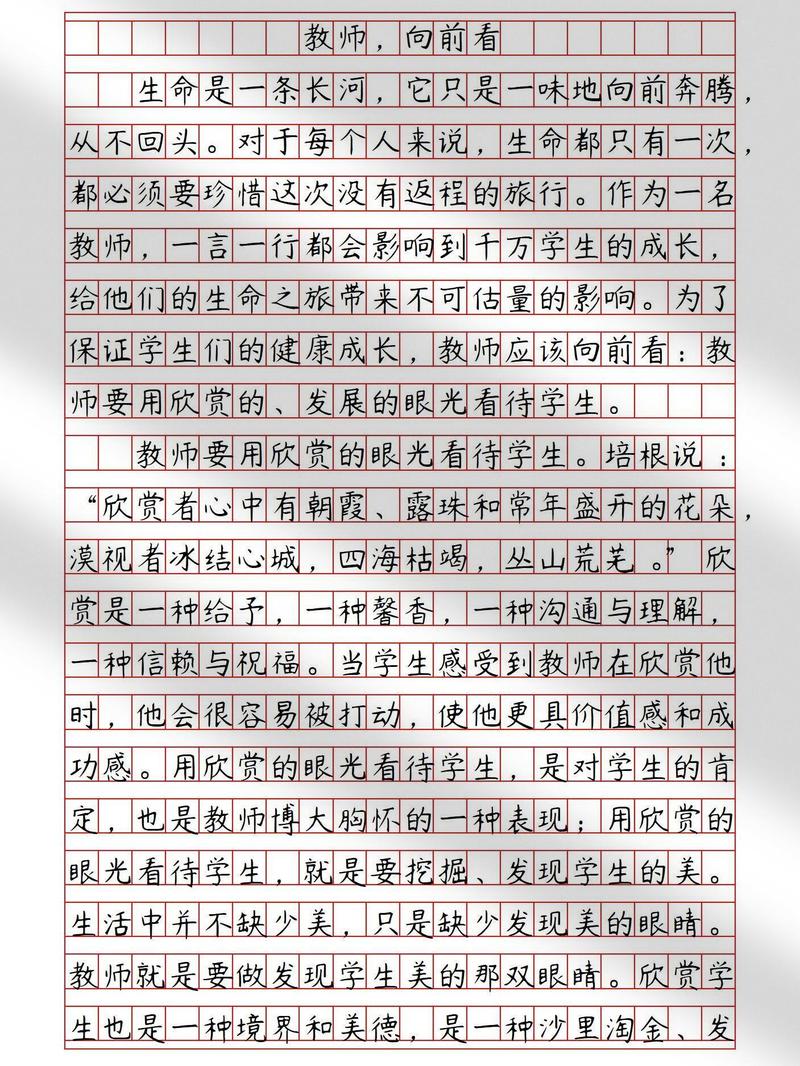 教师，向前看
生命是一条长河，它只是一味地向前奔腾，
从不回头。对于每个人来说，生命都只有一次，
都必须要珍惜这次没有返程的旅行。作为一名
教师，一言一行都会影响到千万学生的成长，
给他们的生命之旅带来不可估量的影响。为了
保证学生们的健康成长，教师应该向前看：教
师要用欣赏的、发展的眼光看待学生。
教师要用欣赏的眼光看待学生。培根说：
“欣赏者心中有朝霞、露珠和常年盛开的花朵，
漠视者冰结心城，四海枯竭，丛山荒芜。”欣
赏是一种给予，一种馨香，一种沟通与理解，
一种信赖与祝福。当学生感受到教师在欣赏他
时，他会很容易被打动，使他更具价值感和成
功感。用欣赏的眼光看待学生，是对学生的肯
定，也是教师博大胸怀的一种表现；用欣赏的
眼光看待学生，就是要挖掘、发现学生的美。
生活中并不缺少美，只是缺少发现美的眼睛。
教师就是要做发现学生美的那双眼睛。欣赏学
生也是一种境界和美德，是一种沙里淘金、发